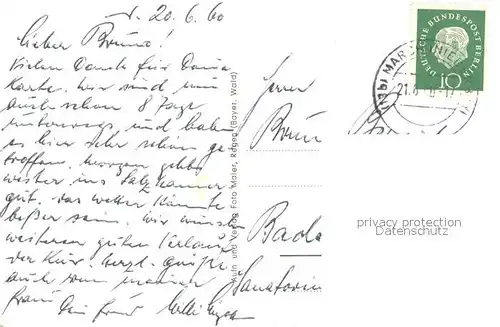 20.6.60
Lieber Bruno!
Vielen Dank für Deine
Karte. Wir sind nun
auch schon 8 Tage
unterwegs und haben
es hier sehr schön ge
troffen. Morgen geht's
weiter ins Salzkammer
gut. Das Wetter könnte
besser sein. Wir wünschen
weiteren guten Verlauf
der Kur. Herzl. Grüße
auch von meiner
Frau Dein Freund Willi
Auln und Verlag Foto Maier, Regen (Bayer. Wald)
DEUTSCHE BUNDESPOST BERLIN
10
21.6
Herrn
Brun
Bade
Sanatorium
privacy protection
Datenschutz